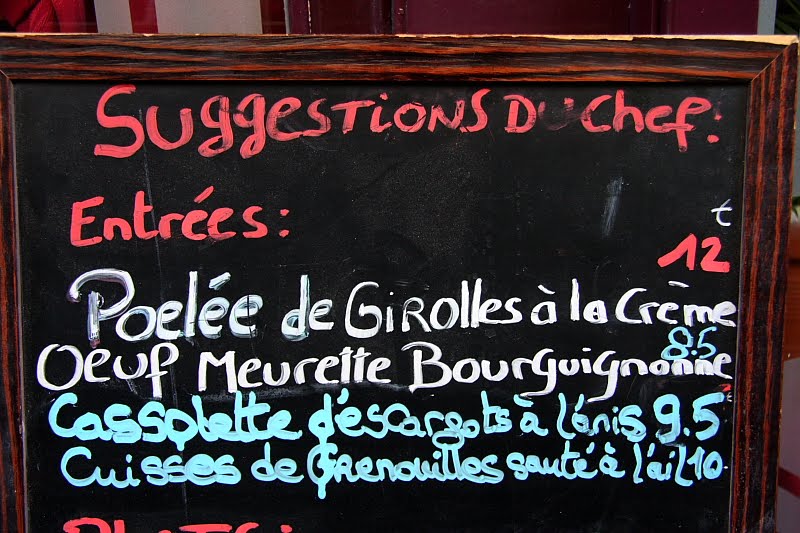 Suggestions Du Chef:
Entrées:
€
12
Poelée de Girolles à la Crème
8.5
Oeuf Meurette Bourguignonne
Cassolette d'éscargots à l'anis 9.5
Cuisses de Grenouilles sauté à l'ail 10
Plats: